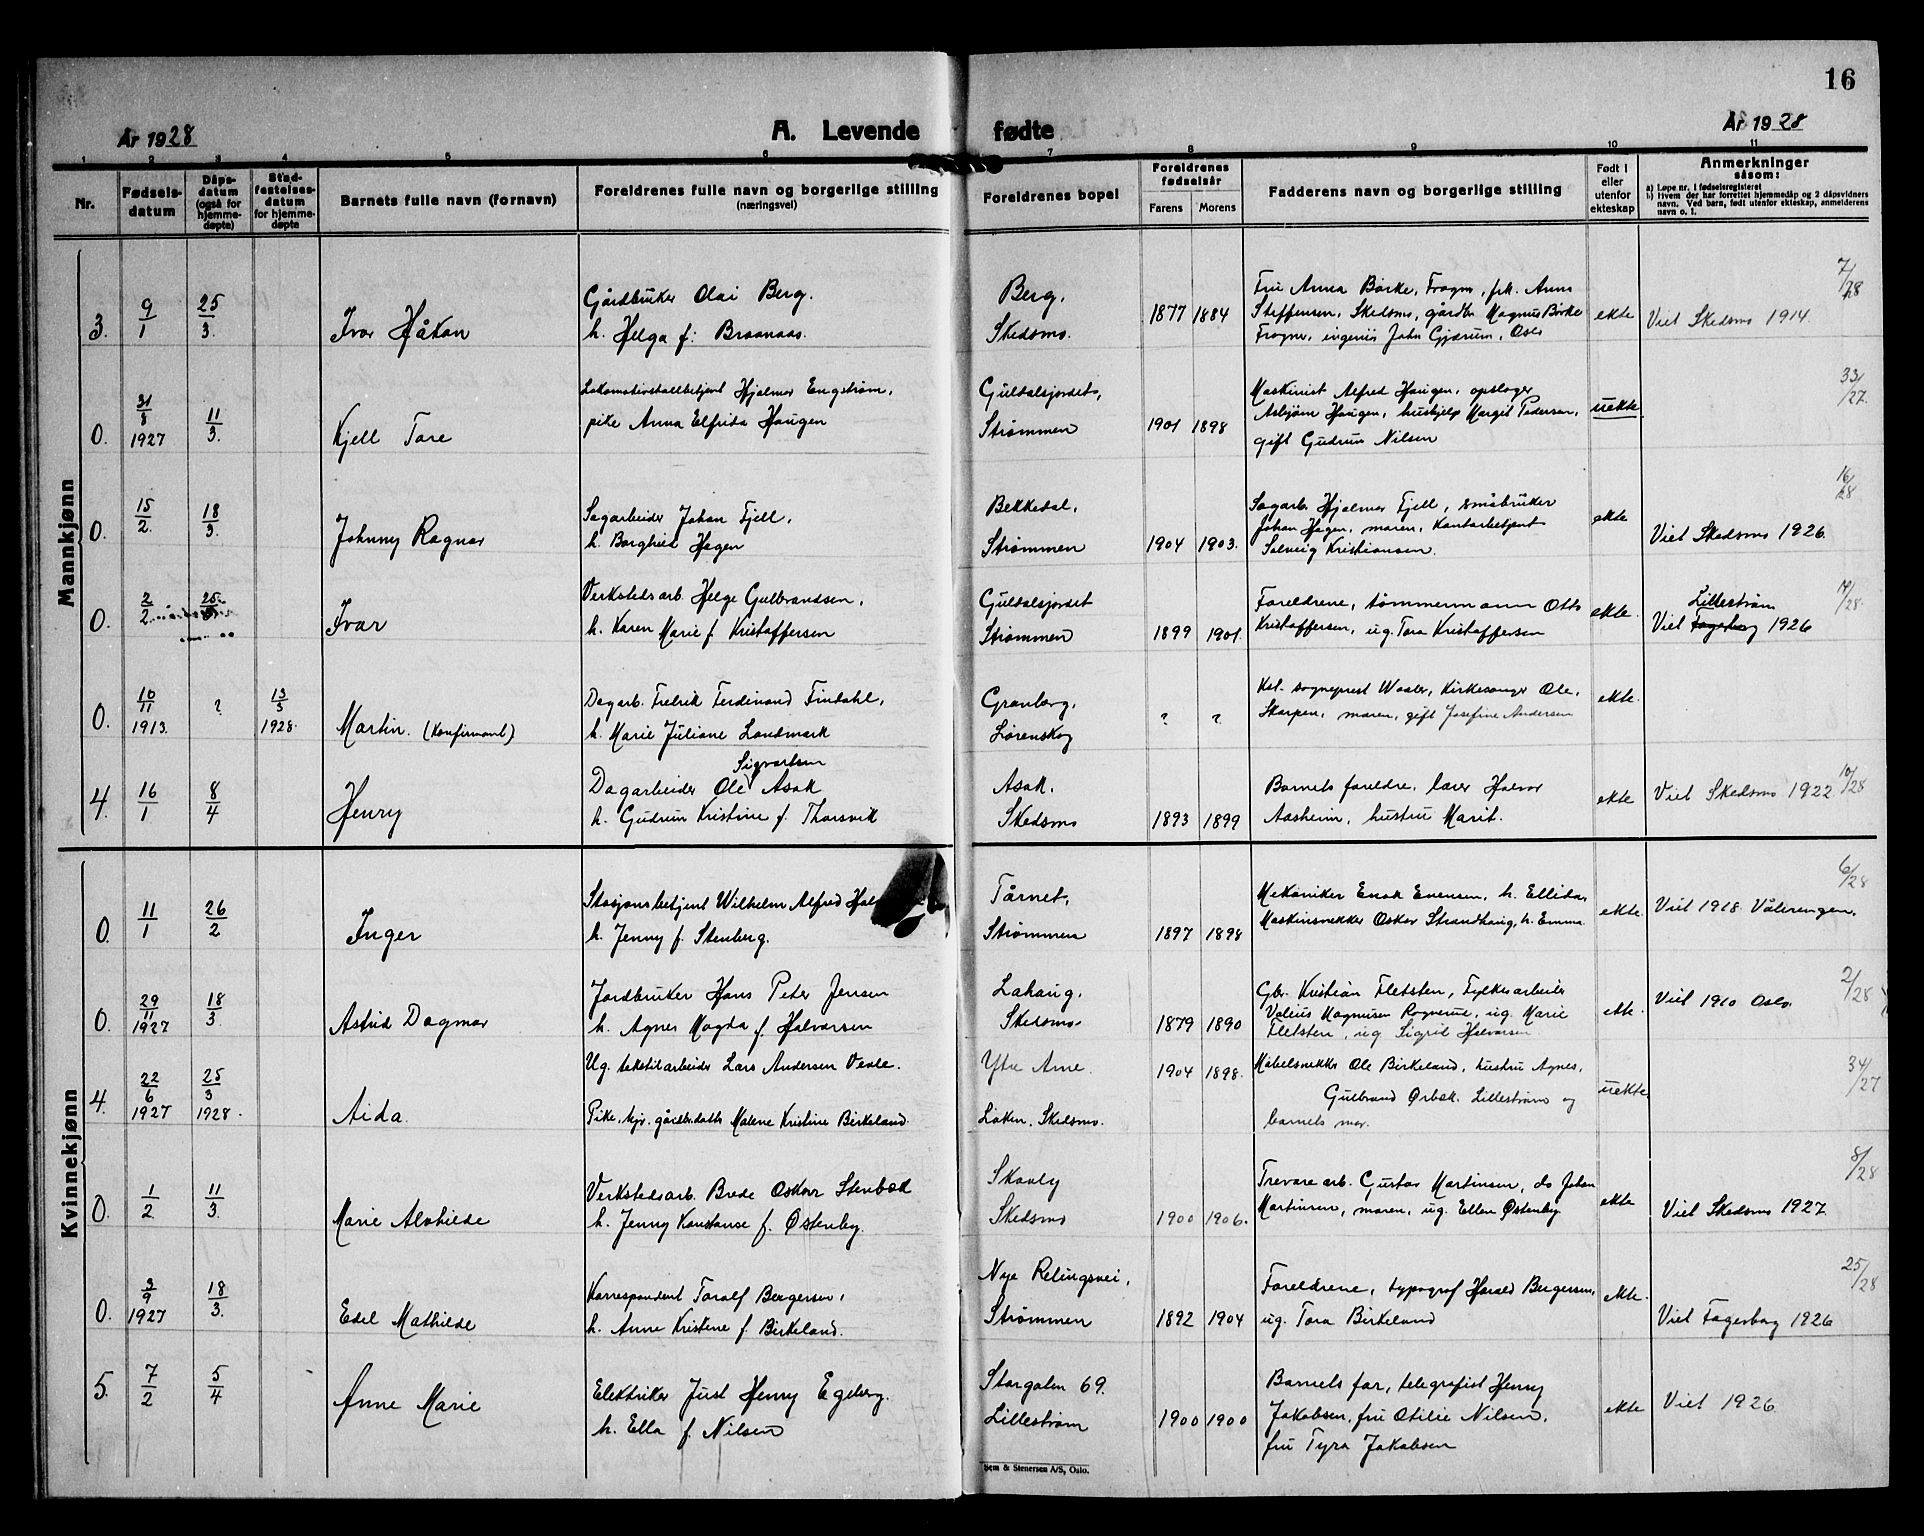 16
År 1928
A. Levende fødte
År 1928
1 2 3 4 5 6 7 8 9 10 11
Nr.
Fødsels-
datum
Dåps-
datum
(også for
hjemme-
døpte)
Stad-
festelses-
datum
for hjemme-
døpte
Barnets fulle navn (fornavn)
Foreldrenes fulle navn og borgerlige stilling
(næringsvei)
Foreldrenes bopel
Foreldrenes
fødselsår
Farens Morens
Fadderens navn og borgerlige stilling
Født i
eller
utenfor
ekteskap
Anmerkninger
såsom:
a) Løpe nr. i fødselsregisteret
b) Hvem der har forrettet hjemmedåp og 2 dåpsvidners
navn. Ved barn, født utenfor ekteskap, anmelderens
navn o. l.
Mannkjønn
3. 9/1 25/3. Ivar Håkon
Gårdbruker Olai Berg.
h. Helga f. Braanaas.
Berg,
Skedsmo.
1877 1884
Fru Anna Børke, Frogner, frk. Anna
Steffensen, Skedsmo, gårdbr. Magnus Børke
Frogner, ingeniør John Gjærum, Oslo
ekte
Viet Skedsmo 1914.
7/28
0. 31/8 1927 11/3. Kjell Tore
Lokomotivstallbetjent Hjalmar Engstrøm,
pike Anna Elfrida Haugen
Guldalsjordet,
Strømmen
1901 1898
Maskinist Alfred Haugen, opslager
Asbjørn Haugen, hushjelp Margit Pedersen,
gift Gudrun Nilsen
uekte
33/27.
0. 15/2. 18/3. Johnny Ragnar
Sagarbeider Johan Fjell,
h. Borghild Hagen
Bekkedal,
Strømmen
1904 1903.
Sagarb. Hjalmar Fjell, småbruker
Johan Hagen, moren, Kontorbetjent
Solveig Kristiansen.
ekte
Viet Skedsmo 1926.
16/28
0. 2/2 25/3 Ivar
Verkstedsarb. Helge Gulbrandsen,
h. Karen Marie f. Kristoffersen
Guldalsjordet
Strømmen
1899 1901.
Foreldrene, tømmermann Otto
Kristoffersen, ug. Tora Kristoffersen
ekte.
Lillestrøm
Viet Fagerborg 1926
17/28.
0. 10/11 1913. ? 13/5 1928. Martin. (Konfirmant)
Dagarb. Fredrik Ferdinand Findahl,
h. Marie Juliane Landmark
Granberg,
Lørenskog
? ?
Kst. sogneprest Waaler, Kirkesanger Ole
Skarpen, moren, gift Josefine Andersen
ekte.
4. 16/1 8/4 Henry
Sigvartsen
Dagarbeider Ole Asak
h. Gudrun Kristine f. Thorsvik
Asak.
Skedsmo
1893 1899
Barnets foreldre, lærer Halvor
Aasheim, hustru Marit.
ekte
Viet Skedsmo 1922.
10/28
Kvinnekjønn
0. 11/1 26/2 Inger
Stasjonsbetjent Wilhelm Alfred
h. Jenny f. Stenberg.
Tårnet,
Strømmen
1897 1898
Mekaniker Enok Evensen, h. Ellida,
Maskinsnekker Oskar Strandhaug, h. Emma
ekte.
Viet 1918 Vålerengen.
6/28
0. 29/11 1927 18/3. Astrid Dagmar
Jordbruker Hans Peter Jensen
h. Agnes Magda f. Halvorsen
Lahaug.
Skedsmo.
1879 1890
Gbr. Kristian Fletsten, Fylkesarbeider
Valeius Magnussen Rognerud, ug. Marie
Fletsten, ug Sigrid Halvorsen
ekte.
Viet 1910 Oslo.
2/28
4. 22/6 1927 25/3 1928. Aida.
Ug. tekstilarbeider Lars Andersen Vevle.
Pike, tjr. gårdbr.datter Malene Kristine Birkeland.
Ytre Arne.
Løken, Skedsmo.
1904 1898.
Møbelsnekker Ole Birkeland, hustru Agnes,
Gulbrand Ørbek, Lillestrøm og
barnets mor.
uekte
34/27
0. 1/2 11/3. Marie Alvhilde
Verkstedsarb. Brede Oskar Stenbæk
h. Jenny Konstanse f. Østenby.
Skovly
Skedsmo
1900 1906.
Trevare arb. Gustav Martinsen, do Johan
Martinsen, moren, ug. Ellen Østenby
ekte
Viet Skedsmo 1927.
8/28
0. 3/9 1927 18/3. Edel Mathilde
Korrespondent Toralf Bergersen,
h. Anne Kristene f. Birkeland.
Nye Relingsvei,
Strømmen
1892 1904
Foreldrene, typograf Harald Bergersen,
ug. Tora Birkeland
ekte.
Viet Fagerborg 1926
25/28
5. 7/2 5/4 Anne Marie
Elektriker Just Henry Egeberg.
h. Ella f. Nilsen
Storgaten 69.
Lillestrøm
1900 1900
Barnets far, telegrafist Henry
Jakobsen, fru Otilie Nilsen,
fru Tyra Jakobsen
ekte
Viet 1926.
Sem & Stenersen A/S, Oslo.